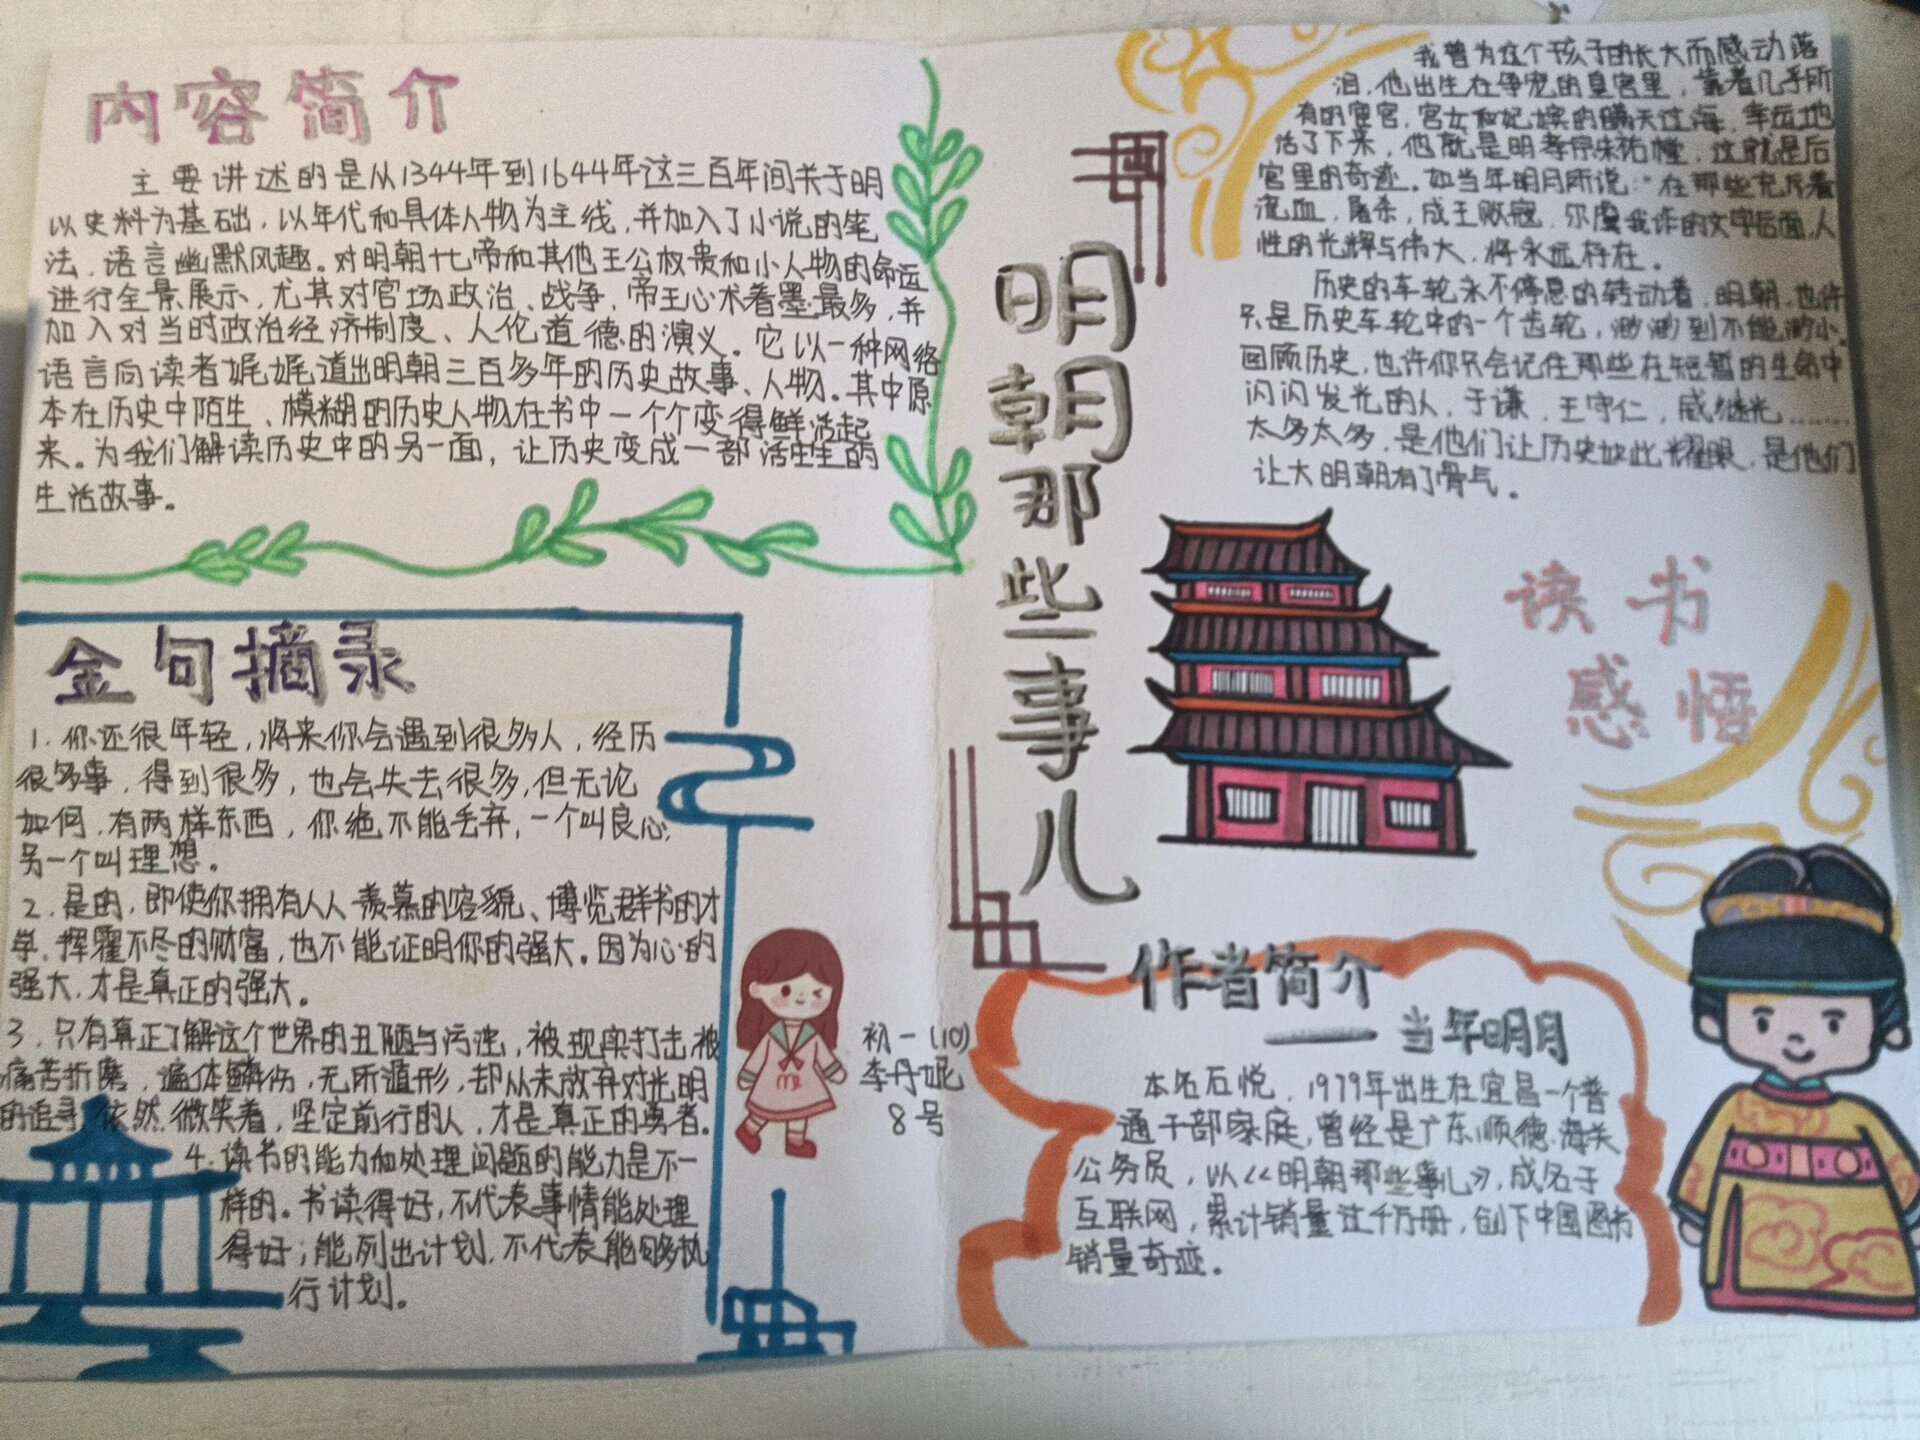 内容简介
主要讲述的是从1344年到1644年这三百年间关于明
以史料为基础，以年代和具体人物为主线，并加入了小说的笔
法，语言幽默风趣。对明朝十七帝和其他王公权贵和小人物的命运
进行全景展示，尤其对官场政治、战争、帝王心术着墨最多，并
加入对当时政治经济制度、人伦道德的演义。它以一种网络
语言向读者娓娓道出明朝三百多年的历史故事、人物。其中原
本在历史中陌生、模糊的历史人物在书中一个个变得鲜活起
来。为我们解读历史中的另一面，让历史变成一部活生生的
生活故事。
金句摘录
1. 你还很年轻，将来你会遇到很多人，经历
很多事，得到很多，也会失去很多，但无论
如何，有两样东西，你绝不能丢弃，一个叫良心，
另一个叫理想。
2. 是的，即使你拥有人人羡慕的容貌、博览群书的才
学，挥霍不尽的财富，也不能证明你的强大。因为心的
强大，才是真正的强大。
3. 只有真正了解这个世界的丑陋与污浊，被现实打击，被
痛苦折磨，遍体鳞伤，无所遁形，却从未放弃对光明
的追寻，依然微笑着，坚定前行的人，才是真正的勇者。
4. 读书的能力和处理问题的能力是不一
样的。书读得好，不代表事情能处理
得好；能列出计划，不代表能够执
行计划。
初一(10)
李丹妮
8号
明朝那些事儿
我曾为这个孩子的长大而感动落
泪，他出生在争宠的皇宫里，靠着几乎所
有的宦官，宫女和妃嫔的瞒天过海，幸运地
活了下来，他就是明孝宗朱祐樘，这就是后
宫里的奇迹。如当年明月所说：在那些充斥着
流血，屠杀，成王败寇，尔虞我诈的文字后面，人
性的光辉与伟大，将永远存在。
历史的车轮永不停息的转动着，明朝，也许
只是历史车轮中的一个齿轮，渺渺到不能渺小。
回顾历史，也许你只会记住那些在短暂的生命中
闪闪发光的人，于谦，王守仁，戚继光……
太多太多，是他们让历史如此耀眼，是他们
让大明朝有了骨气。
读书
感悟
作者简介
——当年明月
本名石悦，1979年出生在宜昌一个普
通干部家庭，曾经是广东顺德海关
公务员，以《明朝那些事儿》，成名于
互联网，累计销量过千万册，创下中国图书
销量奇迹。